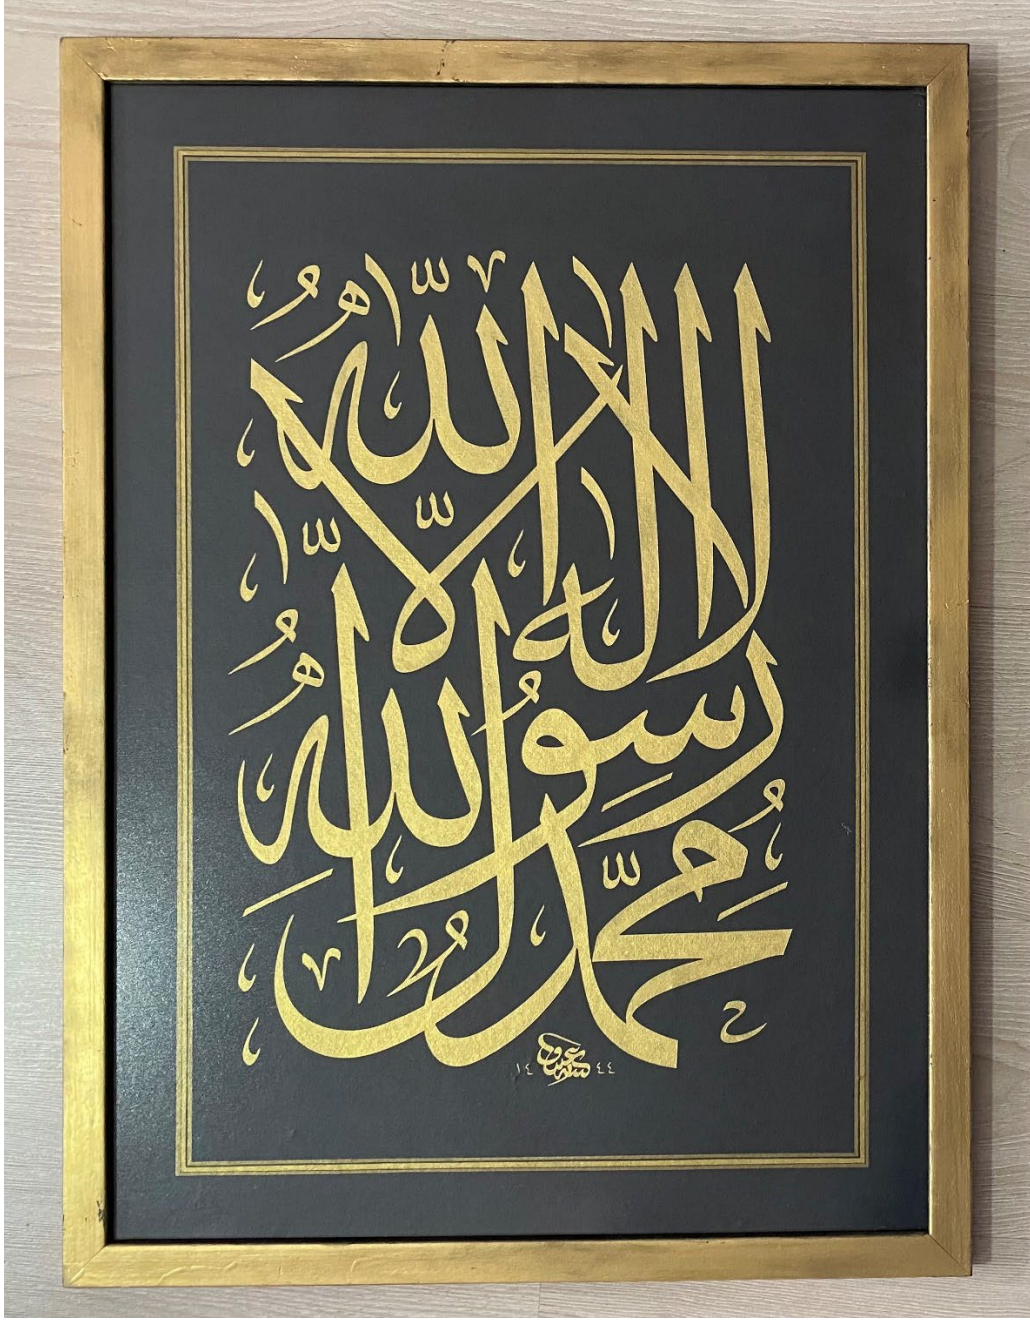 لَا إِلٰهَ إِلَّا اللّٰهُ
مُحَمَّدٌ رَسُولُ اللّٰهِ
١٤٤٤